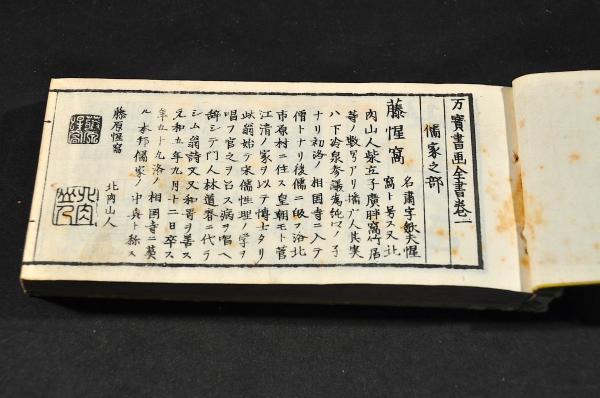 万寶書画全書巻一
儒家之部
藤惺窩
名肅字歛夫惺
窩ト号ス又北
肉山人柴立子廣胖窩竹居
等ノ数号アリ播广人其実
ハ下冷泉参議為純ノ子
ナリ初洛ノ相國寺ニ入テ
僧トナリ後儒ニ皈ス洛北
市原村ニ住ス皇朝モト菅
江清ノ家ヲ以テ博士タリ
此翁始テ宋儒性理ノ学ヲ
唱フ官之ヲ召ス病ヲ唱ヘ
辞シテ門人林道春ニ代ラ
シム翁詩文又和哥ヲ善ス
元和五年九月十二日卒ス
年五十九洛ノ相国寺ニ葬
ル本邦儒家ノ中興ト称ス
藤原惺窩
北肉山人